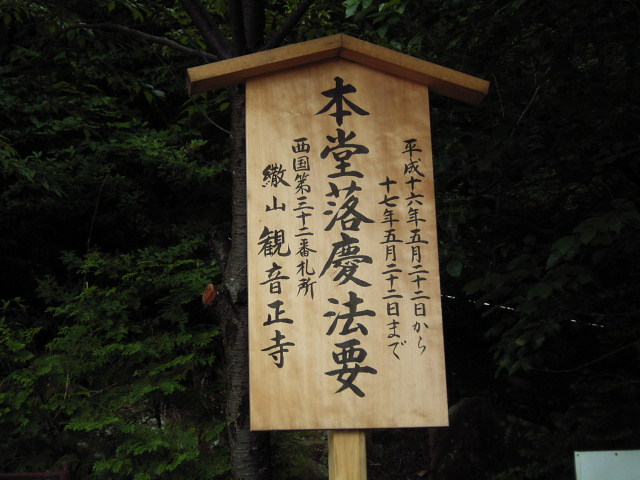 平成十六年五月二十二日から
十七年五月二十二日まで
本堂落慶法要
西国第三十二番札所
繖山観音正寺